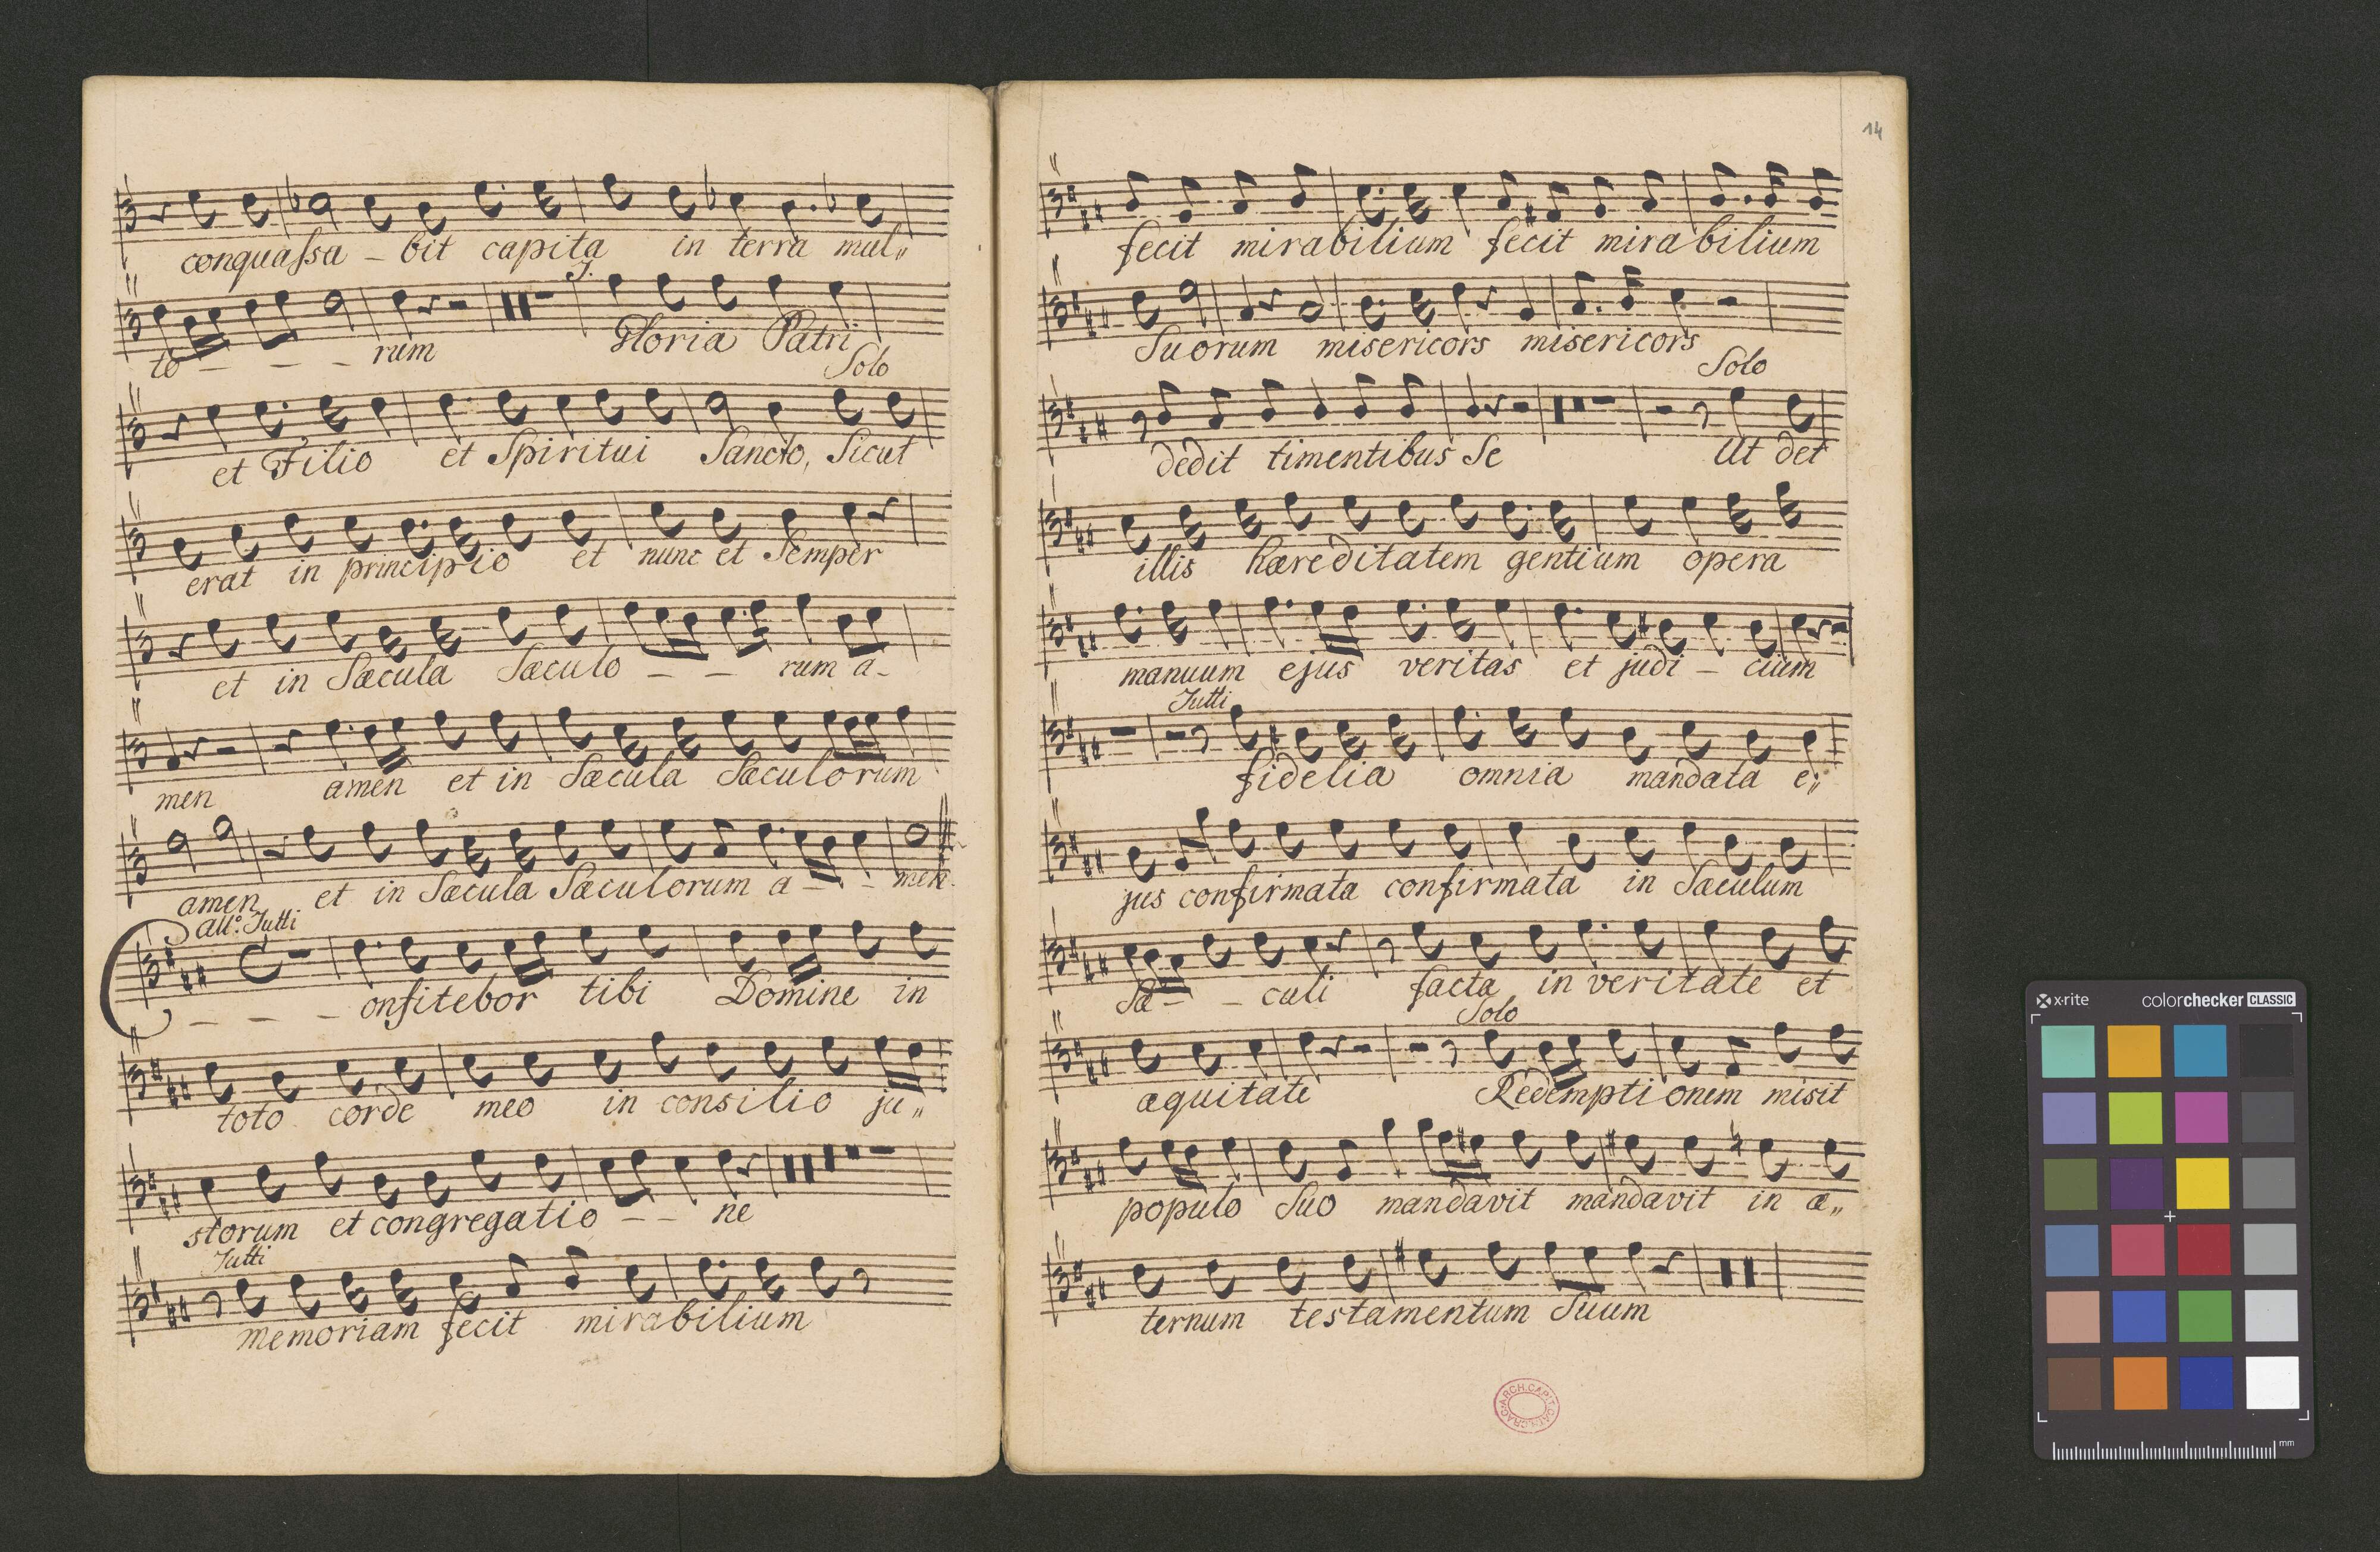 conquaſsa - bit capita in terra mul„
T.
to - - - rum Gloria Patri
Solo
et Filio et Spiritui Sancto, Sicut
erat in principio et nunc et Semper
et in Sæcula Sæculo - - rum a-
men amen et in Sæcula Sæculorum
amen et in Sæcula Sæculorum a - - men
all.º Tutti
C - - - onfitebor tibi Domine in
toto corde meo in consilio ju„
storum et congregatio - - ne
Tutti
memoriam fecit mirabilium
14
fecit mirabilium fecit mirabilium
Suorum misericors misericors
Solo
dedit timentibus Se Ut det
illis hæreditatem gentium opera
manuum ejus veritas et judi - cium
Tutti
fidelia omnia mandata e„
jus confirmata confirmata in Sæculum
Sæ - - culi facta in veritate et
Solo
æquitate Redemptionem misit
populo Suo mandavit mandavit in æ„
ternum testamentum Suum
ARCH.CAPIT.CATH.CRAC.
x-rite colorchecker CLASSIC
mm